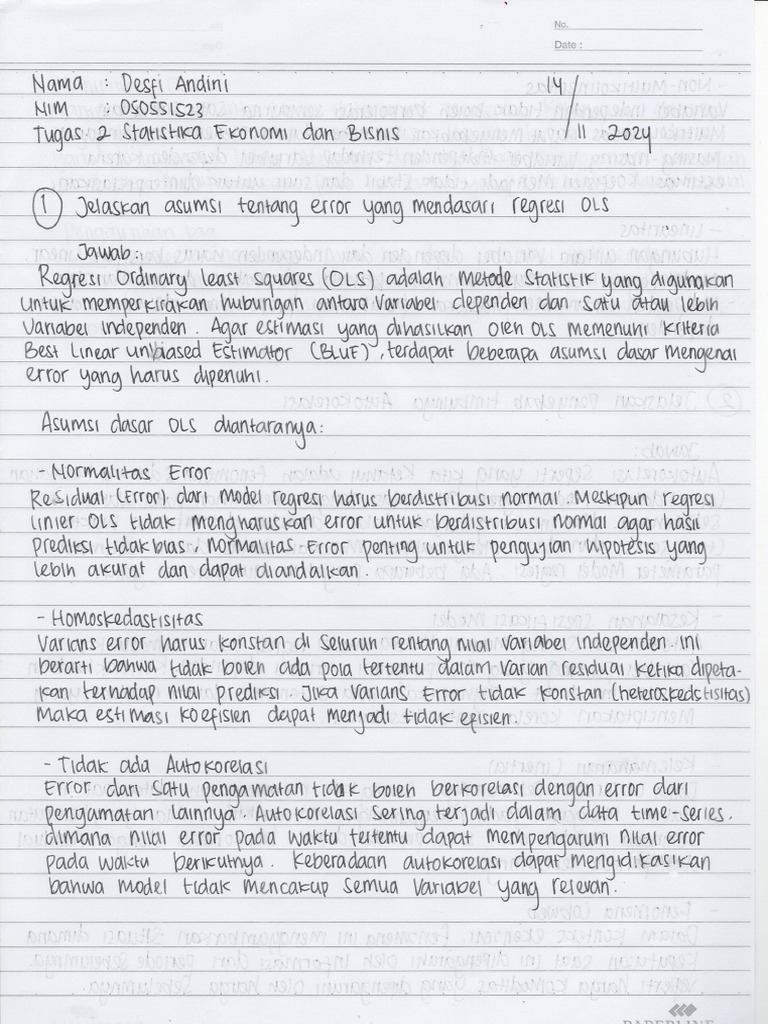 No.
Date :
Nama : Desfi Andini
14/11 2024
NIM : 050551523
Tugas 2 Statistika Ekonomi dan Bisnis
① Jelaskan asumsi tentang error yang mendasari regresi OLS
Jawab:
Regresi Ordinary least squares (OLS) adalah metode Statistik yang digunakan
untuk memperkirakan hubungan antara Variabel dependen dan satu atau lebih
Variabel independen. Agar estimasi yang dihasilkan oleh OLS memenuhi kriteria
Best Linear unbiased Estimator (BLUE), terdapat beberapa asumsi dasar mengenai
error yang harus dipenuhi.
Asumsi dasar OLS diantaranya:
- Normalitas Error
Residual (Error) dari model regresi harus berdistribusi normal. Meskipun regresi
linier OLS tidak mengharuskan error untuk berdistribusi normal agar hasil
prediksi tidak bias. Normalitas Error penting untuk pengujian hipotesis yang
lebih akurat dan dapat diandalkan.
- Homoskedastisitas
Varians error harus konstan di seluruh rentang nilai variabel independen. ini
berarti bahwa tidak boleh ada pola tertentu dalam varian residual ketika dipeta-
kan terhadap nilai prediksi. Jika varians Error tidak konstan (heteroskedstisitas)
Maka estimasi koefisien dapat menjadi tidak efisien.
- Tidak ada Autokorelasi
Error dari satu pengamatan tidak boleh berkorelasi dengan error dari
pengamatan lainnya. Autokorelasi sering terjadi dalam data time-series.
dimana nilai error pada waktu tertentu dapat mempengaruhi nilai error
pada waktu berikutnya. Keberadaan autokorelasi dapat mengidikasikan
bahwa model tidak mencakup semua variabel yang relevan.
PAPERLINE